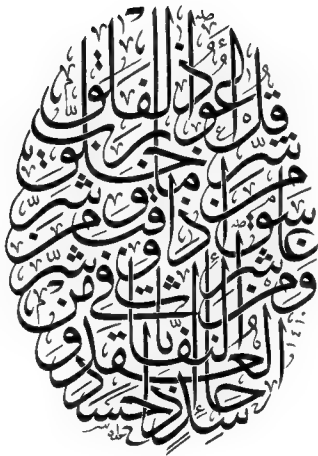 قل أعوذ برب الفلق
من شر ما خلق ومن شر
غاسق إذا وقب
ومن شر النفاثات في
العقد ومن شر
حاسد إذا حسد